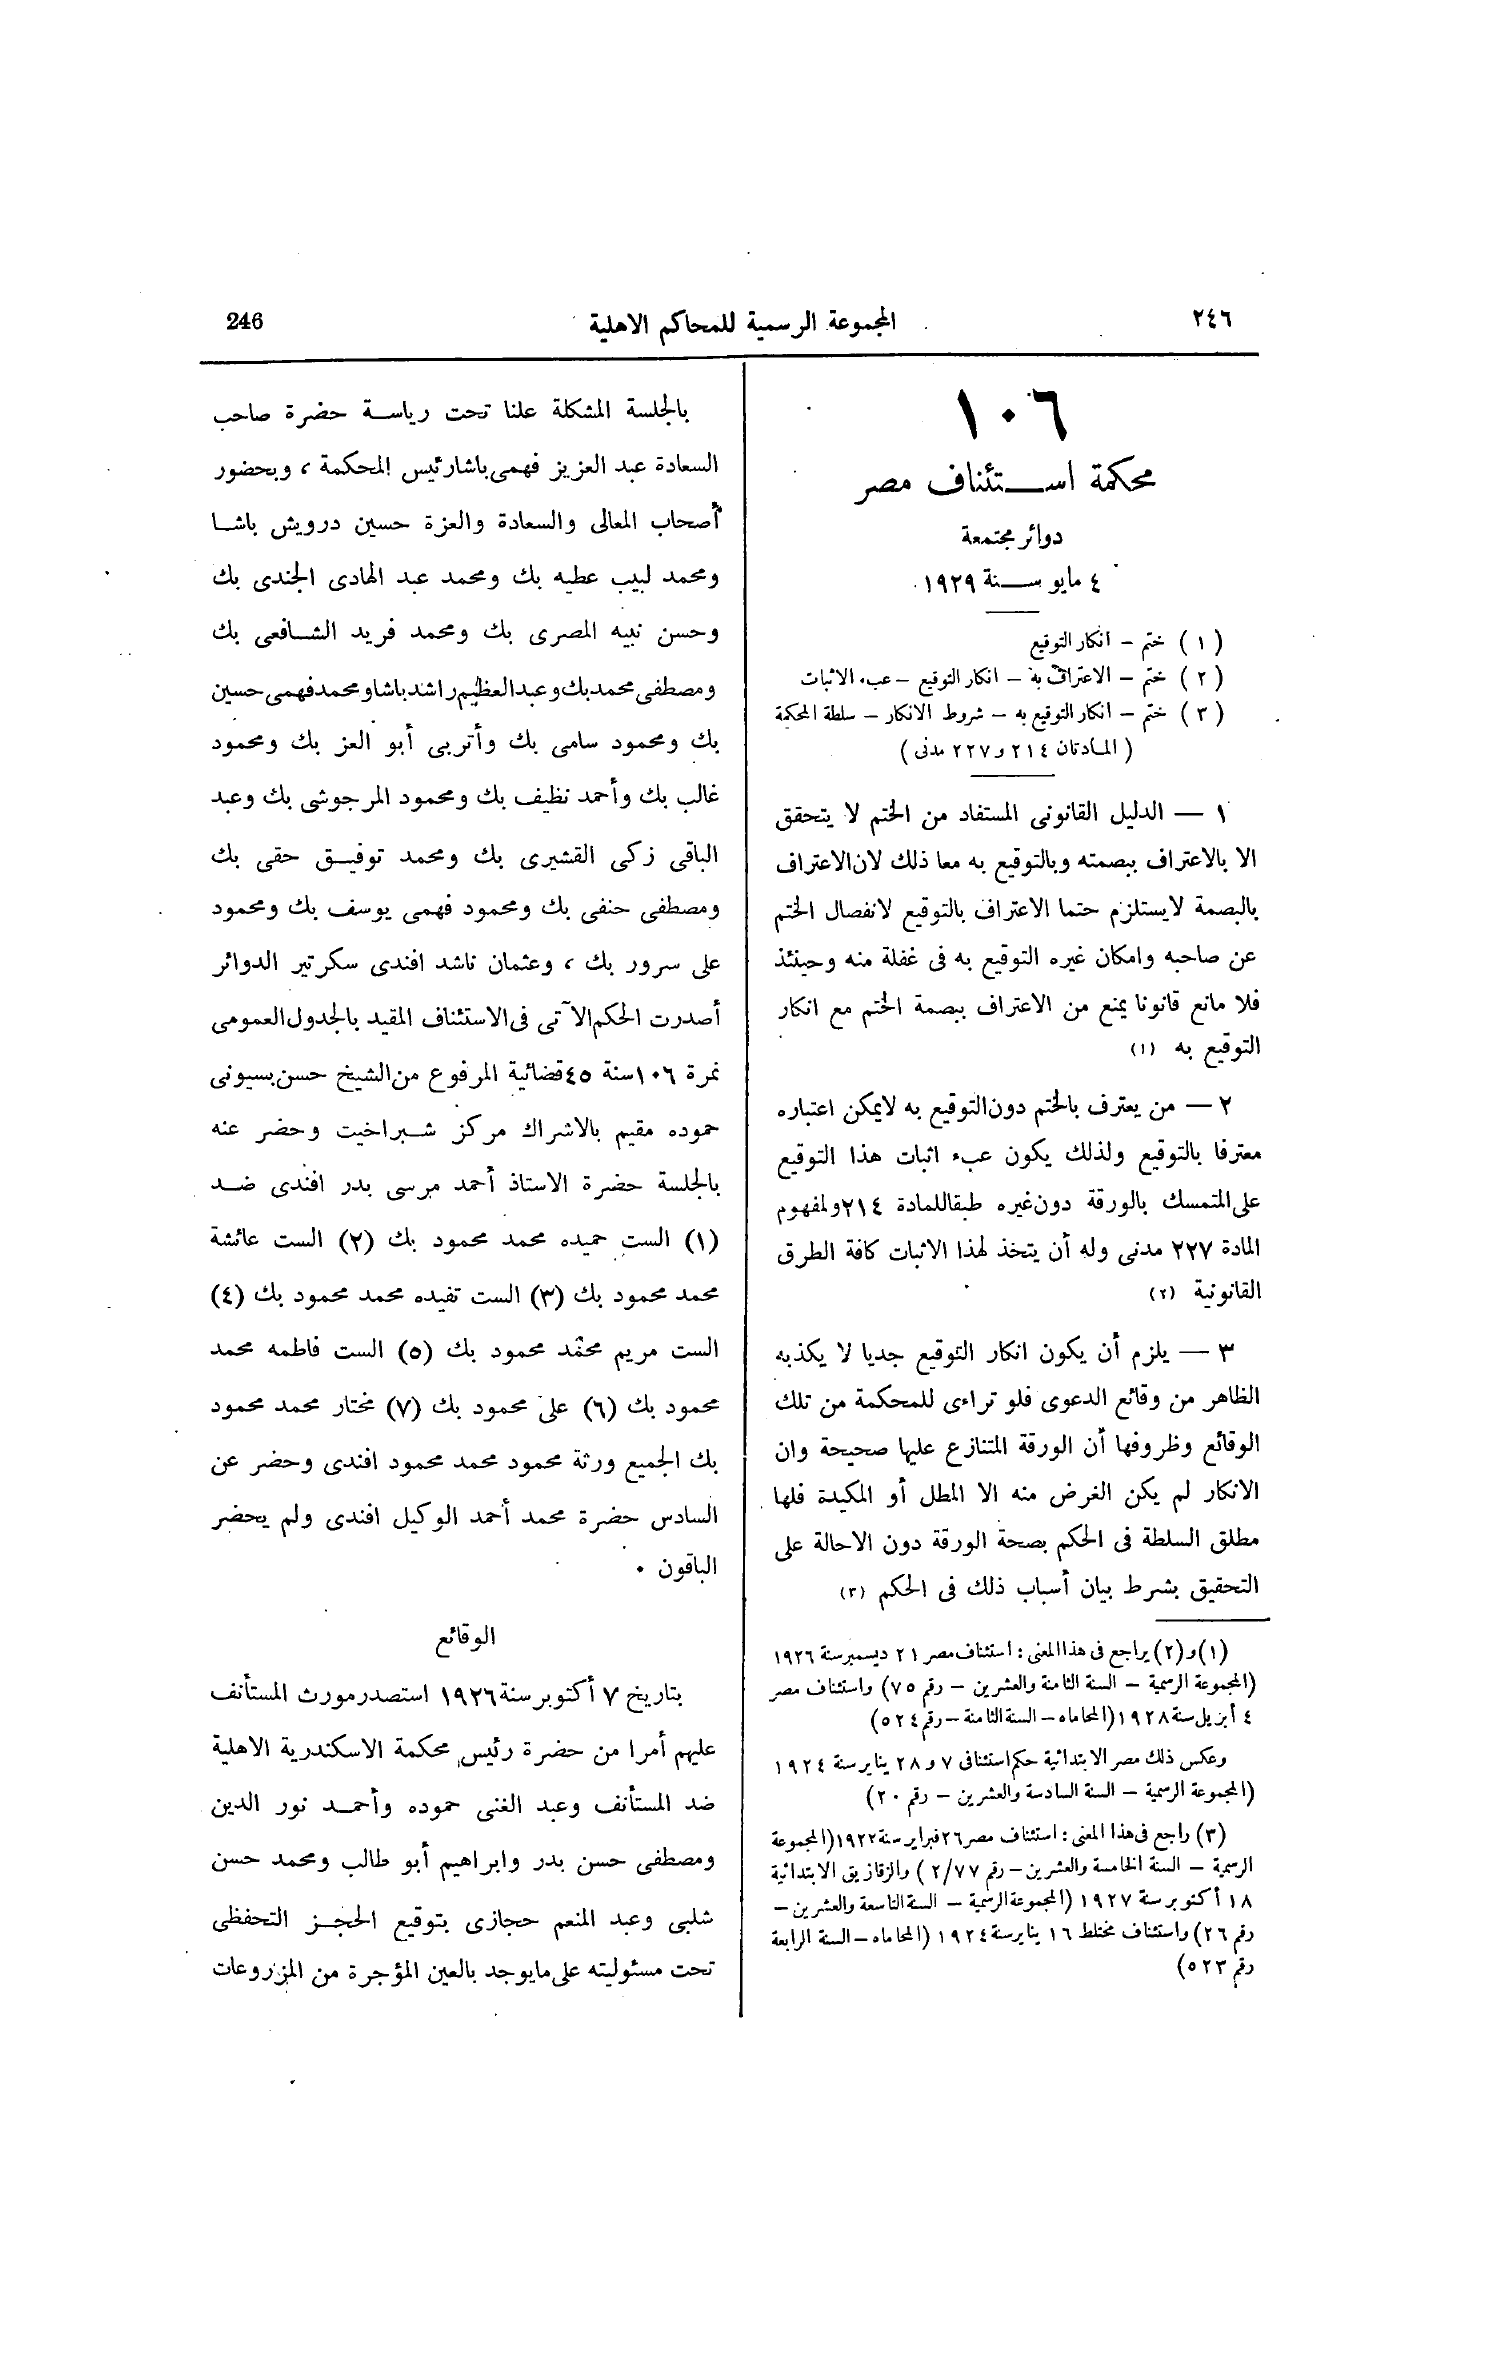 ٢٤٦
المجموعة الرسمية للمحاكم الاهلية
246
١٠٦
محكمة استئناف مصر
دوائر مجتمعة
٤ مايو سنة ١٩٢٩
(١) ختم – انكار التوقيع
(٢) ختم – الاعتراف به – انكار التوقيع – عبء الاثبات
(٣) ختم – انكار التوقيع به – شروط الانكار – سلطة المحكمة
(المادتان ٢١٤ و٢٢٧ مدنى)
١ — الدليل القانونى المستفاد من الختم لا يتحقق
الا بالاعتراف ببصمته وبالتوقيع به معا ذلك لان الاعتراف
بالبصمة لا يستلزم حتما الاعتراف بالتوقيع لانفصال الختم
عن صاحبه وامكان غيره التوقيع به فى غفلة منه وحينئذ
فلا مانع قانونا يمنع من الاعتراف ببصمة الختم مع انكار
التوقيع به (١)
٢ — من يعترف بالختم دون التوقيع به لا يمكن اعتباره
معترفا بالتوقيع ولذلك يكون عبء اثبات هذا التوقيع
على المتمسك بالورقة دون غيره طبقا للمادة ٢١٤ ولمفهوم
المادة ٢٢٧ مدنى وله أن يتخذ لهذا الاثبات كافة الطرق
القانونية (٢)
٣ — يلزم أن يكون انكار التوقيع جديا لا يكذبه
الظاهر من وقائع الدعوى فلو تراءى للمحكمة من تلك
الوقائع وظروفها أن الورقة المتنازع عليها صحيحة وان
الانكار لم يكن الغرض منه الا المطل أو المكيدة فلها
مطلق السلطة فى الحكم بصحة الورقة دون الاحالة على
التحقيق بشرط بيان أسباب ذلك فى الحكم (٣)
(١) و(٢) يراجع فى هذا المعنى : استئناف مصر ٢١ ديسمبر سنة ١٩٢٦
(المجموعة الرسمية – السنة الثامنة والعشرين – رقم ٧٥) واستئناف مصر
٤ أبريل سنة ١٩٢٨ (المحاماه – السنة الثامنة – رقم ٥٢٤)
وعكس ذلك مصر الابتدائية حكم استئنافى ٧ و ٢٨ يناير سنة ١٩٢٤
(المجموعة الرسمية – السنة السادسة والعشرين – رقم ٢٠)
(٣) راجع فى هذا المعنى : استئناف مصر ٢٦ فبراير سنة ١٩٢٢ (المجموعة
الرسمية – السنة الخامسة والعشرين – رقم ٢/٧٧) والزقازيق الابتدائية
١٨ أكتوبر سنة ١٩٢٧ (المجموعة الرسمية – السنة التاسعة والعشرين –
رقم ٢٦) واستئناف مختلط ١٦ يناير سنة ١٩٢٤ (المحاماه – السنة الرابعة
رقم ٥٢٣)
بالجلسة المشكلة علنا تحت رياسة حضرة صاحب
السعادة عبد العزيز فهمى باشا رئيس المحكمة ، وبحضور
أصحاب المعالى والسعادة والعزة حسين درويش باشا
ومحمد لبيب عطيه بك ومحمد عبد الهادى الجندى بك
وحسن نبيه المصرى بك ومحمد فريد الشافعى بك
ومصطفى محمد بك وعبد العظيم راشد باشا ومحمد فهمى حسين
بك ومحمود سامى بك وأتربى أبو العز بك ومحمود
غالب بك وأحمد نظيف بك ومحمود المرجوشى بك وعبد
الباقى زكى القشيرى بك ومحمد توفيق حقى بك
ومصطفى حنفى بك ومحمود فهمى يوسف بك ومحمود
على سرور بك ، وعثمان ناشد افندى سكرتير الدوائر
أصدرت الحكم الآتى فى الاستئناف المقيد بالجدول العمومى
نمرة ١٠٦ سنة ٤٥ قضائية المرفوع من الشيخ حسن بسيونى
حموده مقيم بالاشراك مركز شبراخيت وحضر عنه
بالجلسة حضرة الاستاذ أحمد مرسى بدر افندى ضد
(١) الست حميده محمد محمود بك (٢) الست عائشة
محمد محمود بك (٣) الست تفيده محمد محمود بك (٤)
الست مريم محمد محمود بك (٥) الست فاطمه محمد
محمود بك (٦) على محمود بك (٧) مختار محمد محمود
بك الجميع ورثة محمود محمد محمود افندى وحضر عن
السادس حضرة محمد أحمد الوكيل افندى ولم يحضر
الباقون .
الوقائع
بتاريخ ٧ أكتوبر سنة ١٩٢٦ استصدر مورث المستأنف
عليهم أمرا من حضرة رئيس محكمة الاسكندرية الاهلية
ضد المستأنف وعبد الغنى حموده وأحمد نور الدين
ومصطفى حسن بدر وابراهيم أبو طالب ومحمد حسن
شلبى وعبد المنعم حجازى بتوقيع الحجز التحفظى
تحت مسئوليته على ما يوجد بالعين المؤجرة من المزروعات